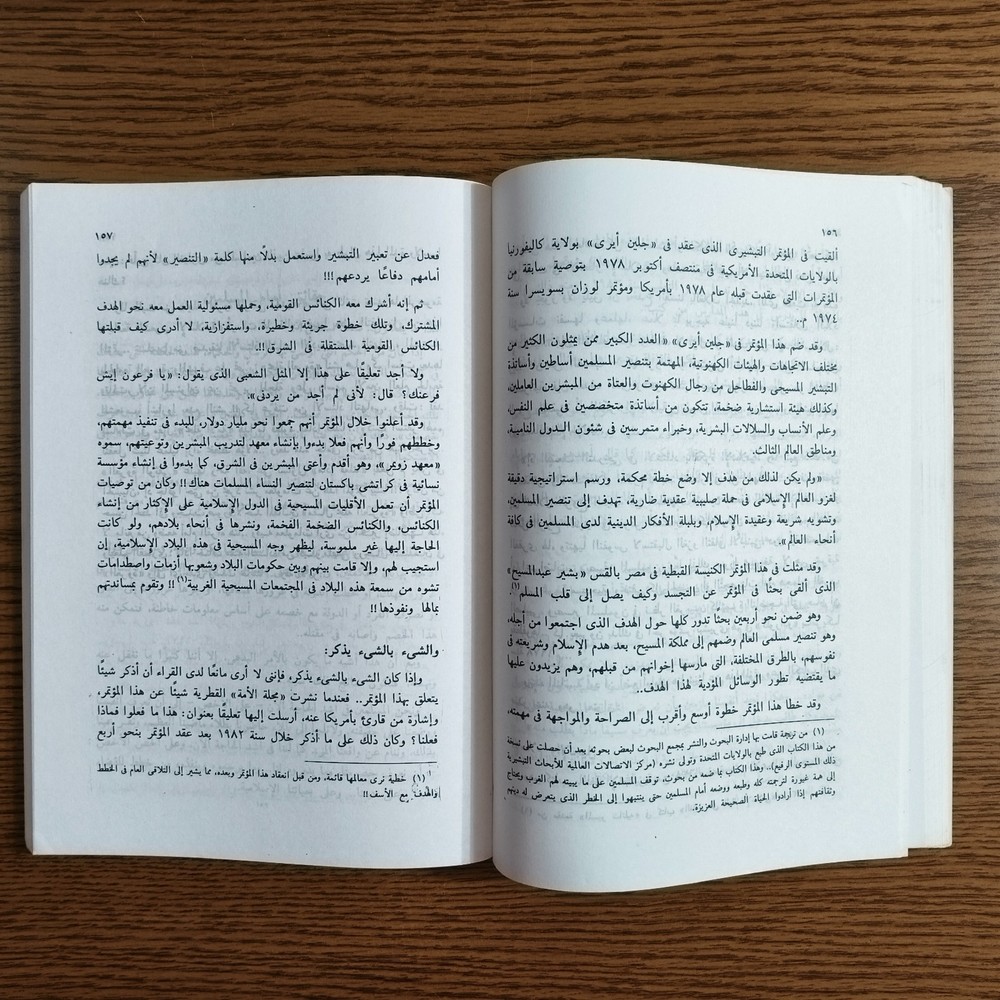 ١٥٦
ألقيت فى المؤتمر التبشيرى الذى عقد فى «جلين أيرى» بولاية كاليفورنيا
بالولايات المتحدة الأمريكية فى منتصف أكتوبر ١٩٧٨ بتوصية سابقة من
المؤتمرات التى عقدت قبله عام ١٩٧٨ بأمريكا ومؤتمر لوزان بسويسرا سنة
١٩٧٤ م.
وقد ضم هذا المؤتمر فى «جلين أيرى» «العدد الكبير ممن يمثلون الكثير من
مختلف الاتجاهات والهيئات الكهنوتية، المهتمة بتنصير المسلمين أساطين وأساتذة
التبشير المسيحى والفطاحل من رجال الكهنوت والعتاة من المبشرين العاملين،
وكذلك هيئة استشارية ضخمة، تتكون من أساتذة متخصصين فى علم النفس،
وعلم الأنساب والسلالات البشرية، وخبراء متمرسين فى شئون الدول النامية،
ومناطق العالم الثالث.
«ولم يكن لذلك من هدف إلا وضع خطة محكمة، ورسم استراتيجية دقيقة
لغزو العالم الإسلامى فى حملة صليبية عقدية ضارية، تهدف إلى تنصير المسلمين،
وتشويه شريعة وعقيدة الإسلام، وبلبلة الأفكار الدينية لدى المسلمين فى كافة
أنحاء العالم».
وقد مثلت فى هذا المؤتمر الكنيسة القبطية فى مصر بالقس «بشير عبدالمسيح»
الذى ألقى بحثًا فى المؤتمر عن التجسد وكيف يصل إلى قلب المسلم(١).
وهو ضمن نحو أربعين بحثًا تدور كلها حول الهدف الذى اجتمعوا من أجله،
وهو تنصير مسلمى العالم وضمهم إلى مملكة المسيح، بعد هدم الإسلام وشريعته فى
نفوسهم، بالطرق المختلفة، التى مارسها إخوانهم من قبلهم، وهم يزيدون عليها
ما يقتضيه تطور الوسائل المؤدية لهذا الهدف..
وقد خطا هذا المؤتمر خطوة أوسع وأقرب إلى الصراحة والمواجهة فى مهمته،
(١) من ترجمة قامت بها إدارة البحوث والنشر بمجمع البحوث لبعض بحوثه بعد أن حصلت على نسخة
من هذا الكتاب الذى طبع بالولايات المتحدة وتولى نشره (مركز الاتصالات العالمية للأبحاث التبشيرية
ذلك المستوى الرفيع).. وهذا الكتاب بما ضمه من بحوث، توقف المسلمين على ما يبيته لهم الغرب ويحتاج
إلى همة غيورة لترجمته كله وطبعه ووضعه أمام المسلمين حتى ينتبهوا إلى الخطر الذى يتعرض له دينهم
وثقافتهم إذا أرادوا الحياة الصحيحة العزيزة.
١٥٧
فعدل عن تعبير التبشير واستعمل بدلًا منها كلمة «التنصير» لأنهم لم يجدوا
أمامهم دفاعًا يردعهم!!!
ثم إنه أشرك معه الكنائس القومية، وحملها مسئولية العمل معه نحو الهدف
المشترك، وتلك خطوة جريئة وخطيرة، واستفزازية، لا أدرى كيف قبلتها
الكنائس القومية المستقلة فى الشرق!!.
ولا أجد تعليقًا على هذا إلا المثل الشعبى الذى يقول: «يا فرعون إيش
فرعنك؟ قال: لأنى لم أجد من يردنى».
وقد أعلنوا خلال المؤتمر أنهم جمعوا نحو مليار دولار، للبدء فى تنفيذ مهمتهم،
وخططهم فورًا وأنهم فعلا بدءوا بإنشاء معهد لتدريب المبشرين وتوعيتهم، سموه
«معهد زويمر»، وهو أقدم وأعتى المبشرين فى الشرق، كما بدءوا فى إنشاء مؤسسة
نسائية فى كراتشى باكستان لتنصير النساء المسلمات هناك!! وكان من توصيات
المؤتمر أن تعمل الأقليات المسيحية فى الدول الإسلامية على الإكثار من إنشاء
الكنائس، والكنائس الضخمة الفخمة، ونشرها فى أنحاء بلادهم، ولو كانت
الحاجة إليها غير ملموسة، ليظهر وجه المسيحية فى هذه البلاد الإسلامية، إن
استجيب لهم، وإلا قامت بينهم وبين حكومات البلاد وشعوبها أزمات واصطدامات
تشوه من سمعة هذه البلاد فى المجتمعات المسيحية الغربية(١)!! وتقوم بمساندتهم
بمالها ونفوذها!!
والشىء بالشىء يذكر:
وإذا كان الشىء بالشىء يذكر، فإننى لا أرى مانعًا لدى القراء أن أذكر شيئًا
يتعلق بهذا المؤتمر.. فعندما نشرت «مجلة الأمة» القطرية شيئًا عن هذا المؤتمر،
وإشارة من قارئ بأمريكا عنه، أرسلت إليها تعليقًا بعنوان: هذا ما فعلوا فماذا
فعلنا؟ وكان ذلك على ما أذكر خلال سنة ١٩٨٢ بعد عقد المؤتمر بنحو أربع
(١) خطية نرى معالمها قائمة، ومن قبل انعقاد هذا المؤتمر وبعده، مما يشير إلى التلاقى العام فى الخطط
والهدف مع الأسف!!